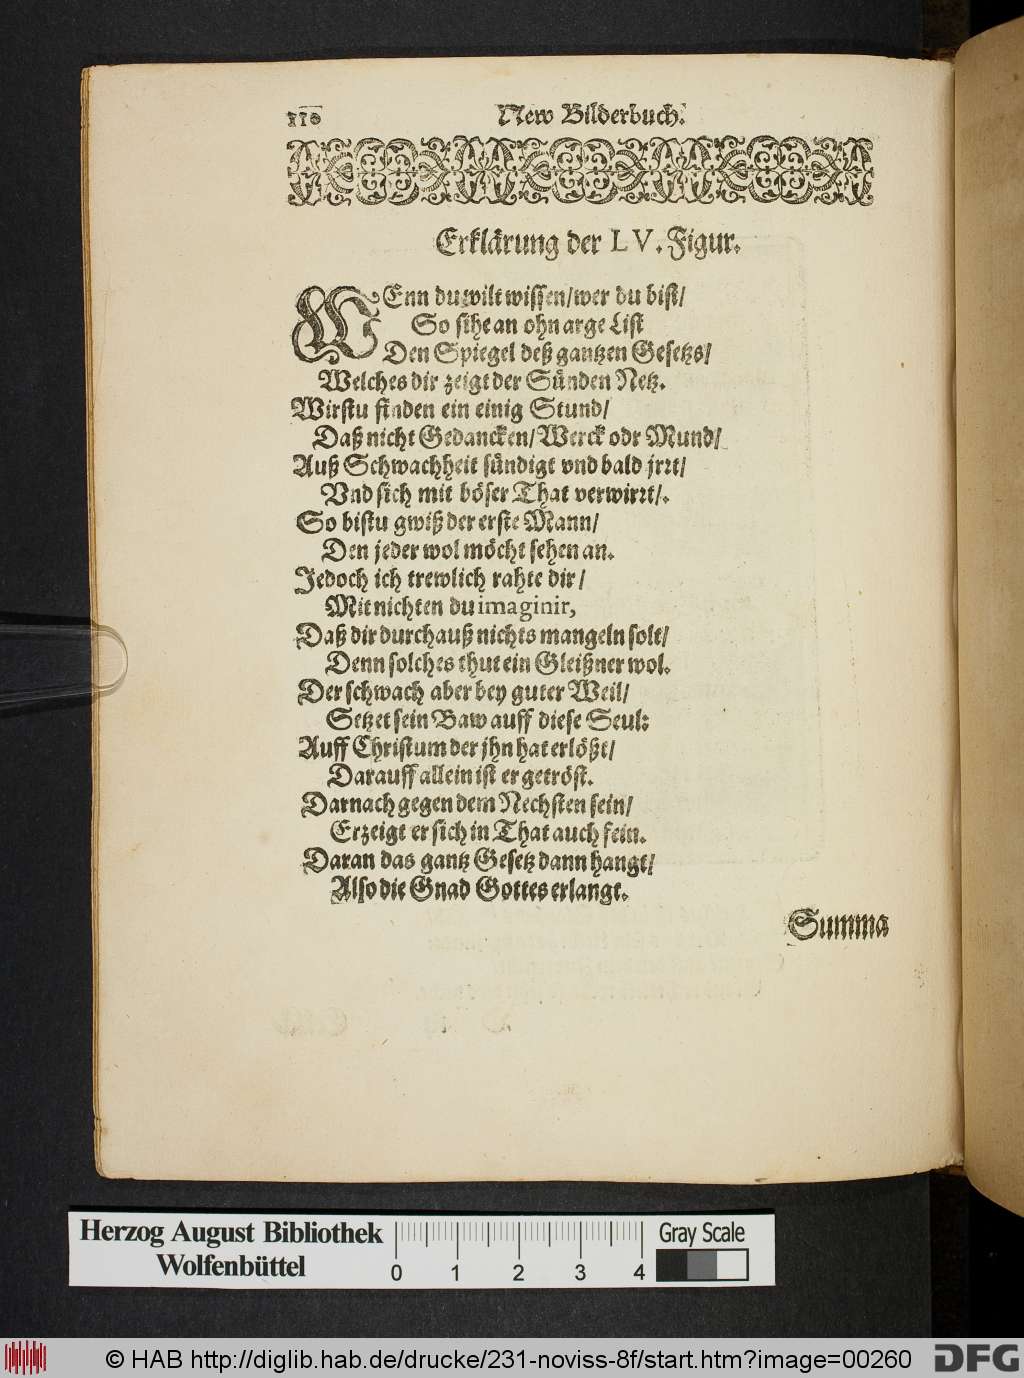 110
New Bilderbuch.
Erklärung der LV. Figur.
WEnn du wilt wissen/wer du bist/
So sihe an ohn arge List
Den Spiegel deß gantzen Gesetzs/
Welches dir zeigt der Sünden Netz.
Wirstu finden ein einig Stund/
Daß nicht Gedancken/Werck odr Mund/
Auß Schwachheit sündigt vnd bald jrrt/
Vnd sich mit böser That verwirrt/.
So bistu gwiß der erste Mann/
Den jeder wol möcht sehen an.
Jedoch ich trewlich rahte dir/
Mit nichten du imaginir,
Daß dir durchauß nichts mangeln solt/
Denn solches thut ein Gleißner wol.
Der schwach aber bey guter Weil/
Setzet sein Baw auff diese Seul:
Auff Christum der jhn hat erlößt/
Darauff allein ist er getröst.
Darnach gegen dem Nechsten sein/
Erzeigt er sich in That auch fein.
Daran das gantz Gesetz dann hangt/
Also die Gnad Gottes erlangt.
Summa
Herzog August Bibliothek
Wolfenbüttel
0 1 2 3 4
Gray Scale
© HAB http://diglib.hab.de/drucke/231-noviss-8f/start.htm?image=00260
DFG